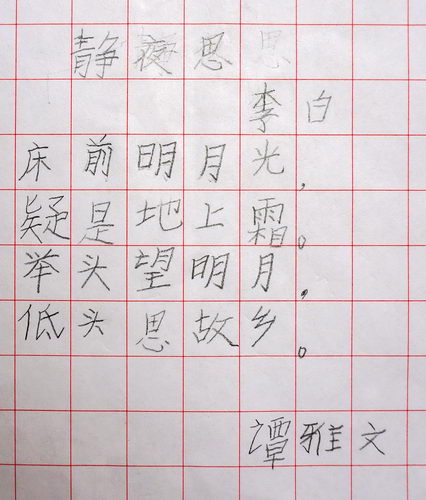 静夜思思
李白
床前明月光，
疑是地上霜。
举头望明月，
低头思故乡。
谭雅文